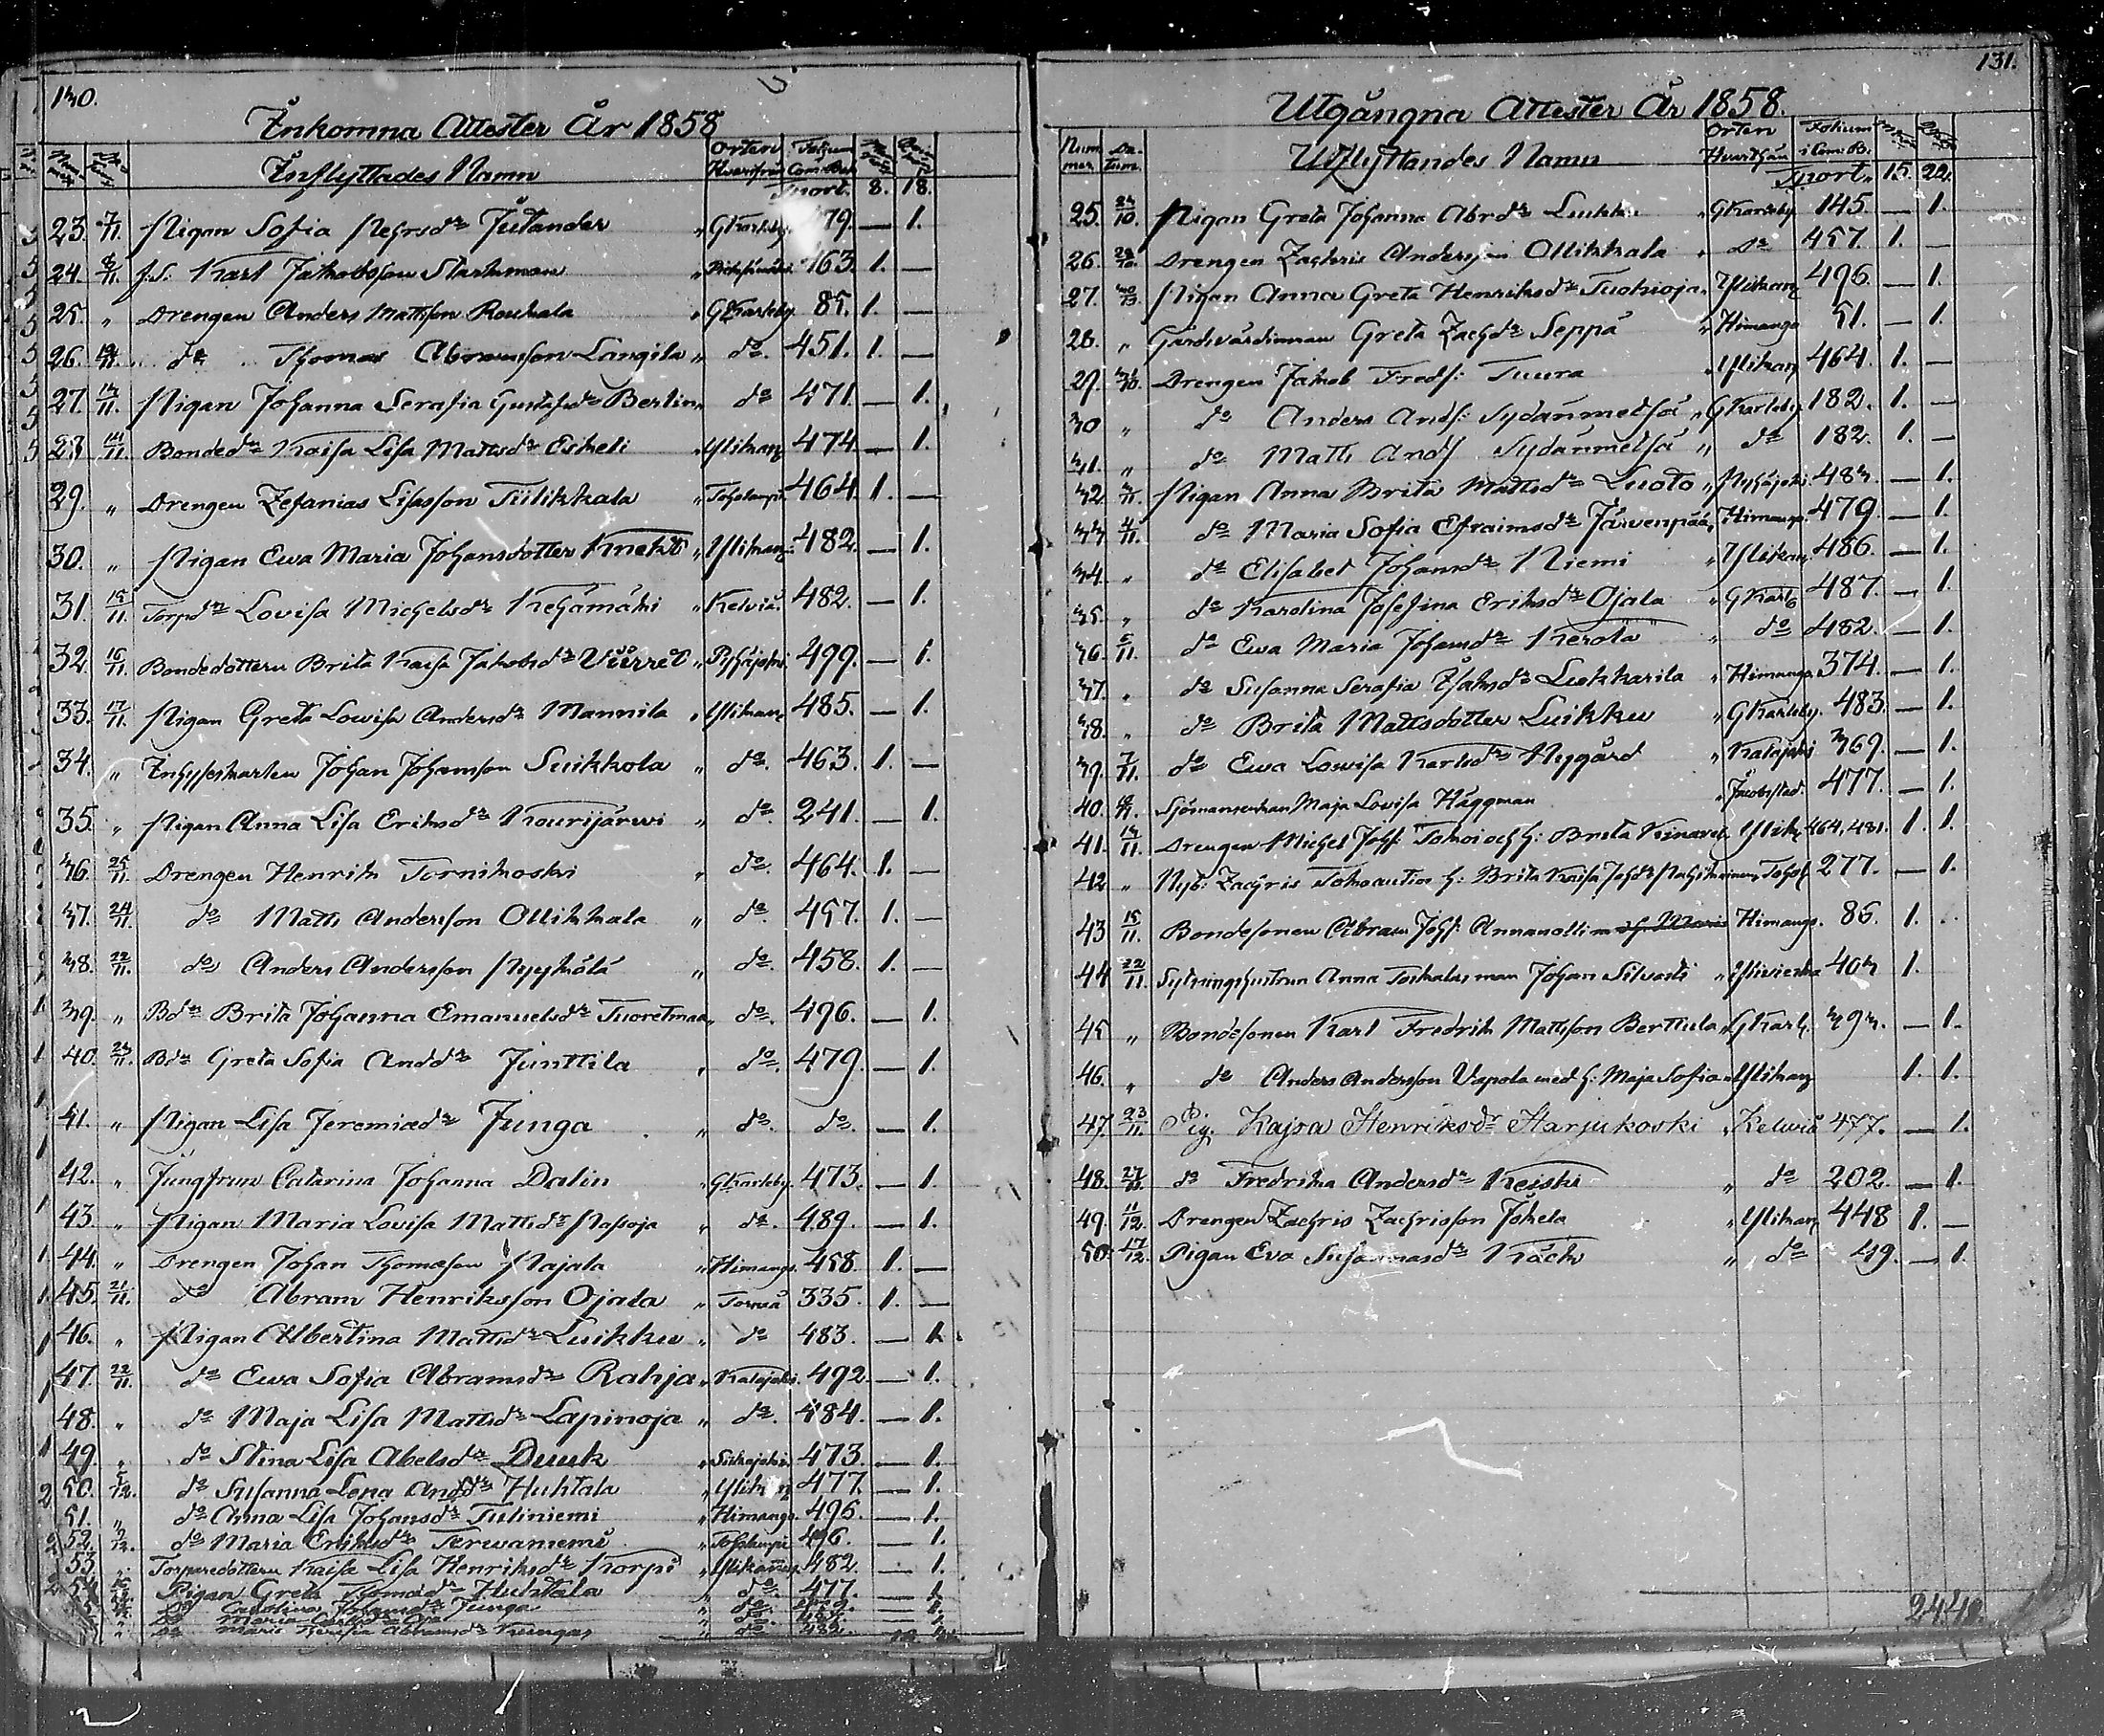 130.
Inkomna Attester År 1858
Inflyttades Namn Orten Hvarifrån Folium Com. Bok
Transport. 8. 18.
23. 7/11. Pigan Sofia Pehrsdr Jutander " GKarleby. 79. — 1.
24. 8/11. Karl Jakobsson Starkman " 163. 1. —
25. " Drengen Anders Mattsson Rauhala " GKarleby. 85. 1. —
26. do Thomas Abramsson Langila " do. 451. 1. —
27. 13/11. Pigan Johanna Serafia Gustafsdr Berlin " do 471. — 1.
28. 14/11. Bondedr Kaisa Lisa Mattsdr Eskeli " Ylikan 474. — 1.
29. " Drengen Zefanias Lisasson Tiilikkala " Toholampi 464. 1. —
30. " Pigan Ewa Maria Johansdotter Knekt " Ylikan 482. — 1.
31. 15/11. Torpdr Lovisa Michelsdr Kehämäki " Kelviå. 482. — 1.
32. 16/11. Bondedottern Brita Kaisa Jakobsdr Vürret " Pyhäjoki. 499. — 1.
33. 17/11. Pigan Greta Lowisa Andersdr Mannila " Ylikan 485. — 1.
34. " Inhyseskarlen Johan Johansson Suikkola " do. 463. 1. —
35. " Pigan Anna Lisa Eriksdr Kourijärwi " do. 241. — 1.
36. 25/11. Drengen Henrik Tornikoski " do. 464. 1. —
37. do Matts Andersson Ollikkala " do. 457. 1. —
38. 22/11. do Anders Andersson Pyykölä " do. 458. 1. —
39. " Bdr Brita Johanna Emanuelsdr Tuoretmaa " do. 496. — 1.
40. Bdr Greta Sofia Anddr Junttila " do. 479. — 1.
41. " Pigan Lisa Jeremiædr Junga " do. do. — 1.
42. " Jungfrun Catarina Johanna Dalin " GKarleby. 473. — 1.
43. " Pigan Maria Lovisa Mattsdr Passoja " do. 489. — 1.
44. " Drengen Johan Thomasson Pajala " Himango. 458. 1. —
45. 21/11. do Abram Henriksson Ojala " Torneå 335. 1. —
46. " Pigan Albertina Mattsdr Luikku " do 483. — 1.
47. 22/11. do Ewa Sofia Abramsdr Rahja " Kalajoki. 492. — 1.
48. " do Maja Lisa Mattsdr Lapinoja " do. 484. — 1.
49. " do Stina Lisa Abelsdr Duuk " Siikajoki. 473. — 1.
50. do Susanna Lena Andsdr Huhtala " Ylikan 477. — 1.
51. " do Anna Lisa Johansdr Tuliniemi " Himango. 496. — 1.
52. do Maria Eriksdr Terwaniemi " Toholampi 496. — 1.
53. " Torparedottern Kaisa Lisa Henriksdr Korpi " Ylikannus 482. — 1.
54. Pigan Greta Thomædr Huhtala " do. 477. — 1.
Carolina Johansdr Junga " do.
Maria
Maria Serafia Abramsdr Kungas " do. 482.
131.
Utgångna Attester År 1858.
Nummer Datum Utflyttandes Namn Orten Hvarthän Folium i Com. B.
Transport. 15. 22.
25. 24/10. Pigan Greta Johanna Abrdr Luikku " GKarleby 145. — 1.
26. Drengen Zachris Andersson Ollikkala " do 457. 1. —
27. Pigan Anna Greta Henriksdr Tuohioja. Ylikan 496. — 1.
28. " Gårdsvärdinnan Greta Zachdr Seppä " Himango 51. — 1.
29. Drengen Jakob Fredf: Tuura " Ylikan 464. 1. —
30 " do Anders Andf: Sydänmetsä " GKarleby. 182. 1. —
31. " do Matts Andf Sydänmetsä " do 182. 1. —
32. Pigan Anna Brita Mattsdr Luoto " Pyhäjoki. 483. — 1.
33 4/11. do Maria Sofia Efraimsdr Järvenpää " Himango. 479. — 1.
34. " do Elisabet Johansdr Niemi " Ylikan 486. — 1.
35. " do Karolina Josefina Eriksdr Ojala " GKarlb 487. — 1.
36. 5/11. do Ewa Maria Johansdr Kerola " do 482. — 1.
37. " do Susanna Serafia Isaksdr Luokkarila " Himango. 374. — 1.
38. " do Brita Mattsdotter Luikku " GKarleby. 483. — 1.
39. 7/11. do Ewa Lowisa Karlsdr Nygård " Kalajoki 369. — 1.
40. Sjömansenkan Maja Lovisa Häggman " Jacobstad. 477. — 1.
41. 14/11. Drengen Michel Johf: Tokoi och h: Brita Kinaret. Ylik. 464, 481. 1. 1.
42 " Nyb: Zachris Tokoi h: Brita Kaisa Johdr Toho 277. — 1.
43 15/11. Bondesonen Abram Johf: Annanolli Himango. 86. 1.
44 22/11. Sytningshustrun Anna man Johan Silvasti " Ylivieska 403 1.
45 " Bondesonen Karl Fredrik Mattsson Berttula " GKarl. 393. — 1.
46. " do Anders Andersson Vapola med h: Maja Sofia " Ylikan 1. 1.
47. 23/11. Pig. Kajsa Henriksdr Harjukoski " Kelwiå 477. — 1.
48. 27/11. do Fredrika Andersdr Keiski " do 202. — 1.
49. 11/12. Drengen Zachris Zachrisson Jokela " Ylikan 448 1. —
50. 17/12. Pigan Eva Susannasdr Käck " do 49. — 1.